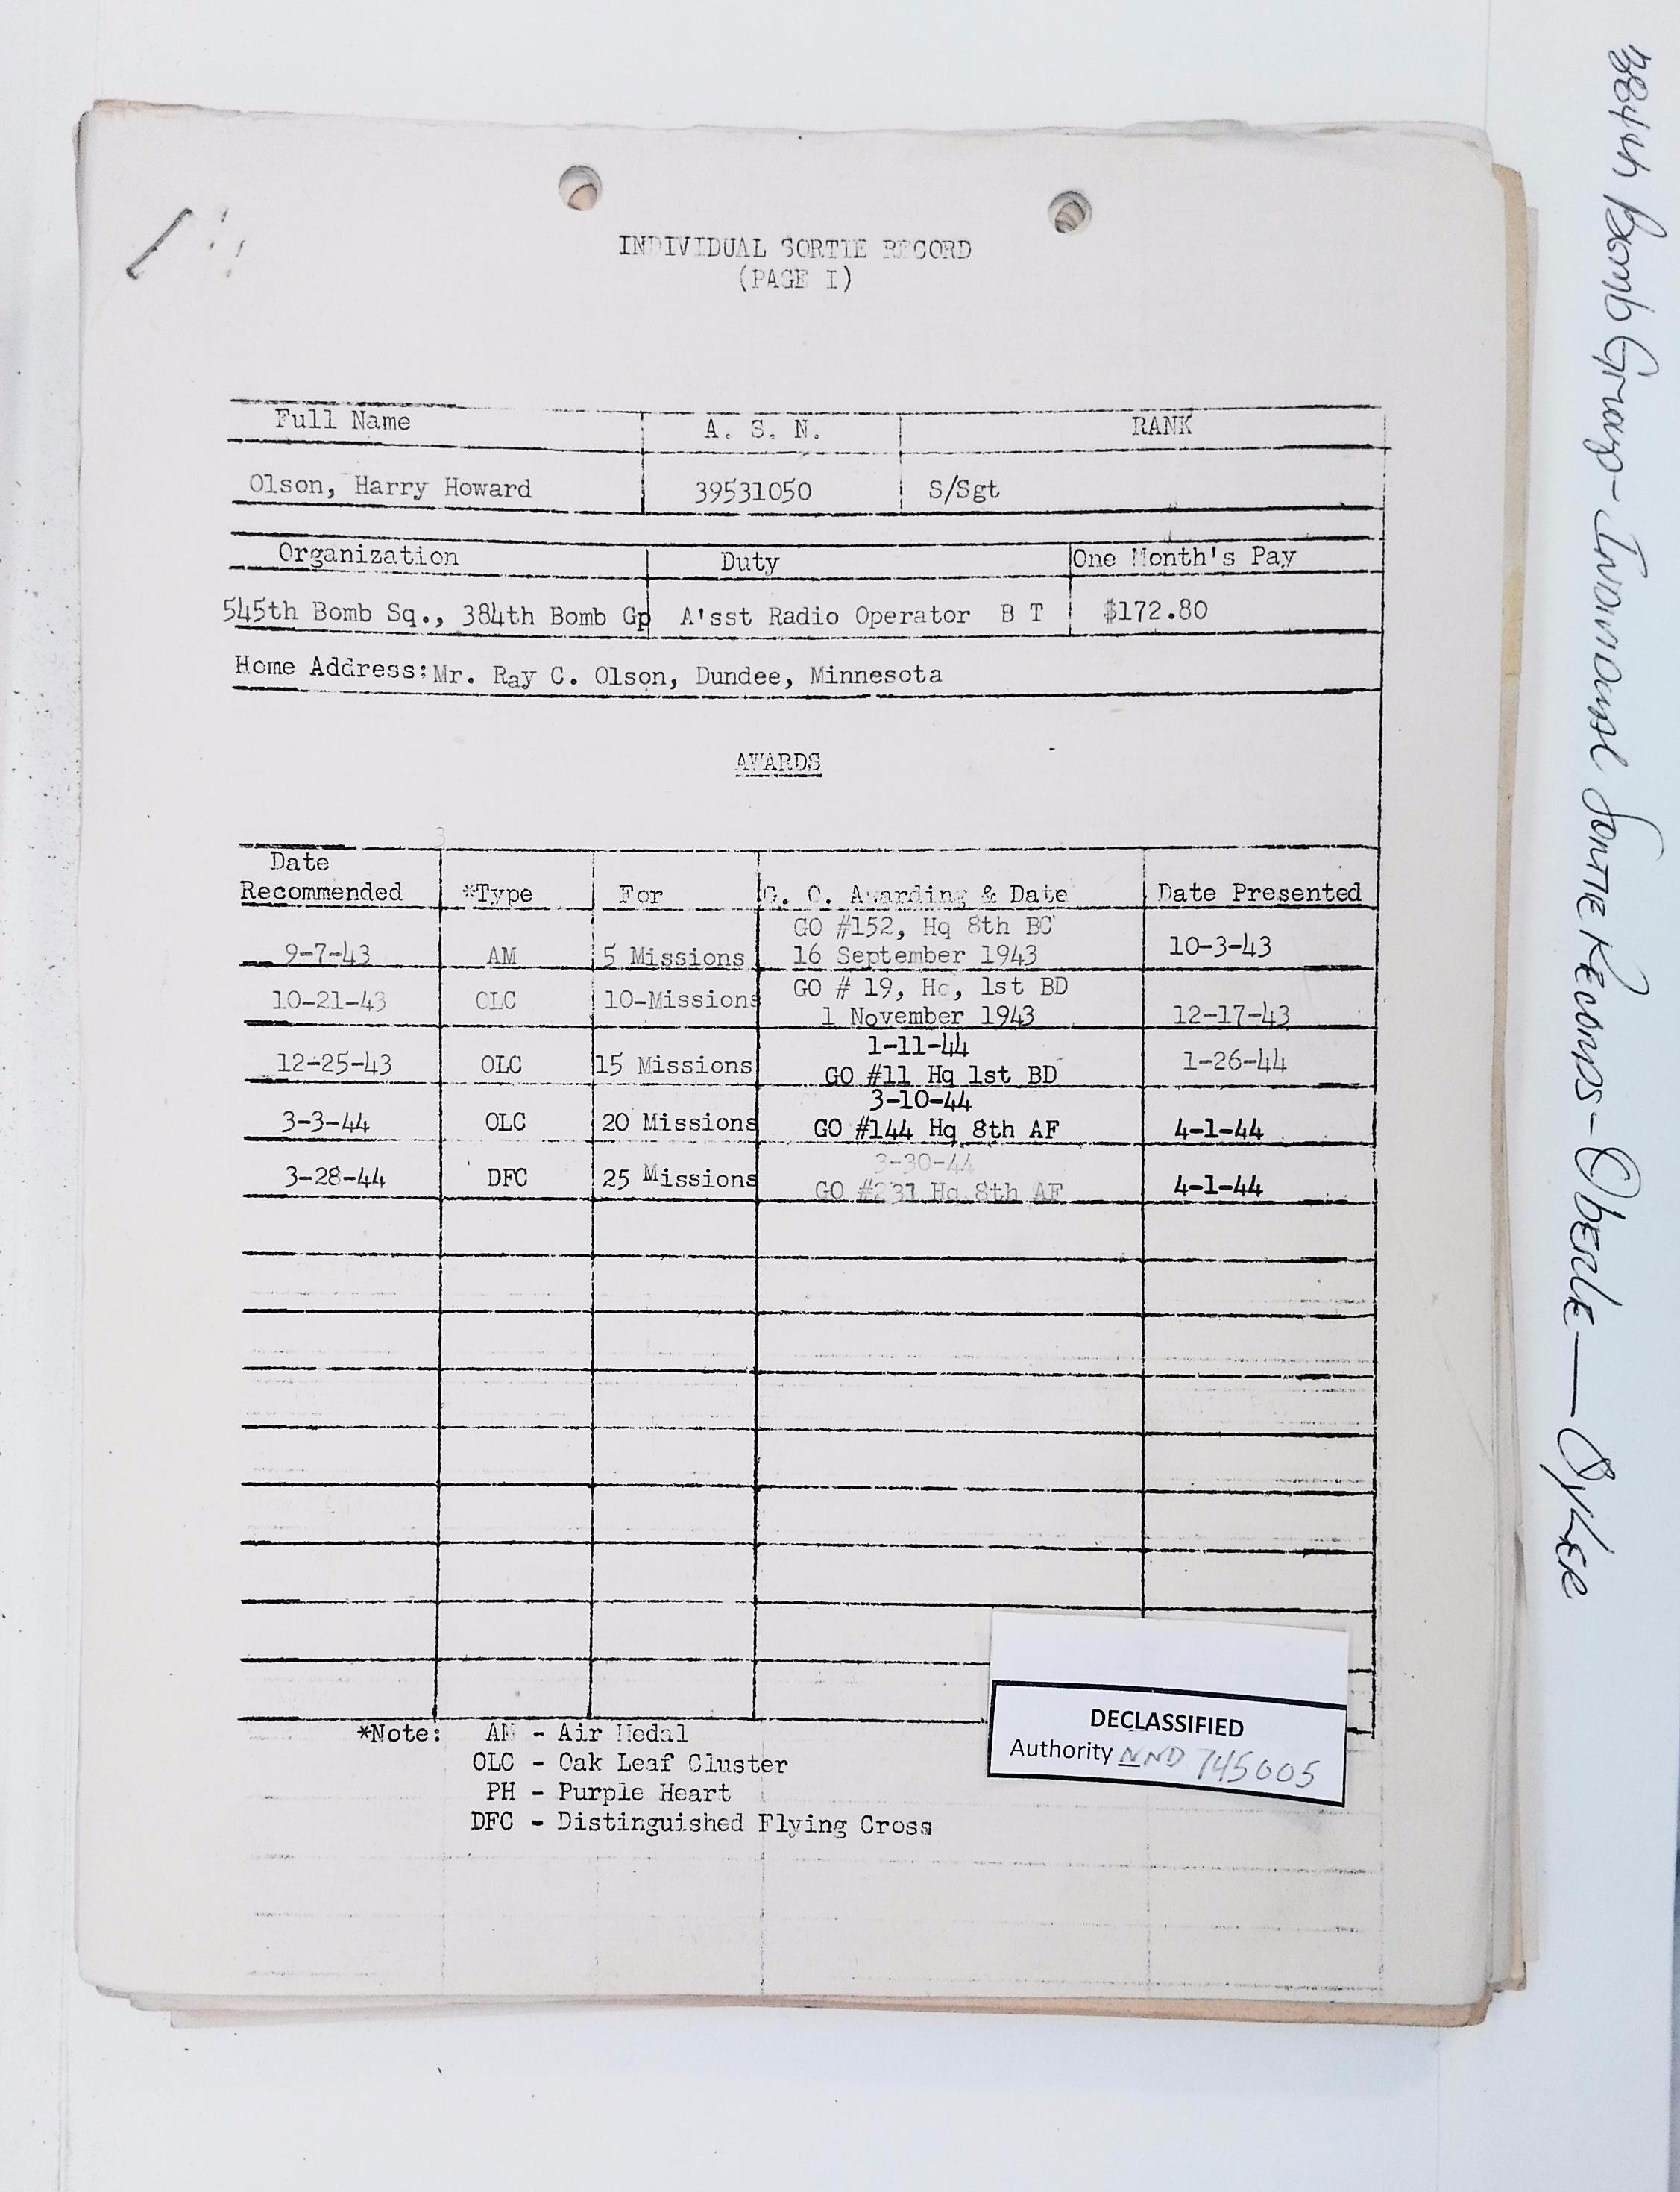 INDIVIDUAL SORTIE RECORD
(PAGE I)
Full Name A. S. N. RANK
Olson, Harry Howard 39531050 S/Sgt
Organization Duty One Month's Pay
545th Bomb Sq., 384th Bomb Gp A'sst Radio Operator B T $172.80
Home Address: Mr. Ray C. Olson, Dundee, Minnesota
AWARDS
3
Date
Recommended *Type For G. O. Awarding & Date Date Presented
GO #152, Hq 8th BC
9-7-43 AM 5 Missions 16 September 1943 10-3-43
GO # 19, Hq, 1st BD
10-21-43 OLC 10-Missions 1 November 1943 12-17-43
1-11-44
12-25-43 OLC 15 Missions GO #11 Hq 1st BD 1-26-44
3-10-44
3-3-44 OLC 20 Missions GO #144 Hq 8th AF 4-1-44
3-30-44
3-28-44 DFC 25 Missions GO #231 Hq 8th AF 4-1-44
*Note: AM - Air Medal
OLC - Oak Leaf Cluster
PH - Purple Heart
DFC - Distinguished Flying Cross
DECLASSIFIED
Authority NND 745005
384th Bomb Group - Individual Sortie Records - Oberle — Oyler